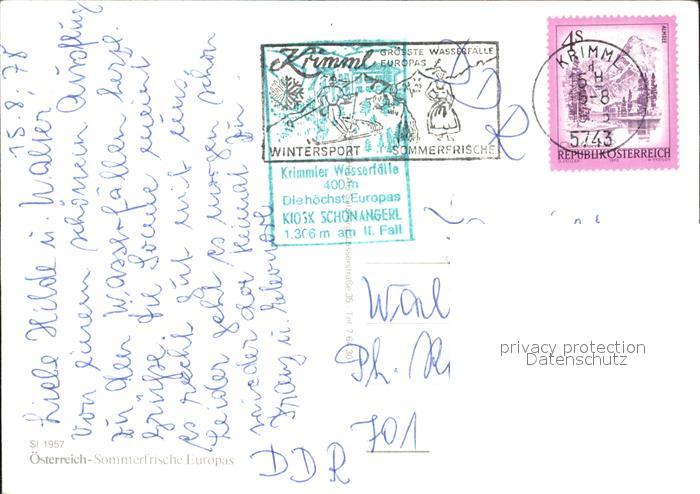 15.8.78
Liebe Hilde u. Walter
Von einem schönen Ausflug
zu den Wasserfällen herzl.
Grüße. Die Sonne meint
es recht gut mit uns.
Leider geht es morgen schon
wieder der Heimat zu.
Franz u.
Krimml GRÖSSTE WASSERFÄLLE
EUROPAS
WINTERSPORT SOMMERFRISCHE
Krimmler Wasserfälle
400 m
Die höchst. Europas
KIOSK SCHÖNANGERL
1.306 m am II. Fall
4S
ALMSEE
REPUBLIK ÖSTERREICH
KRIMML
5743
DDR
Ph.
701
DDR
privacy protection
Datenschutz
SI 1957
Österreich-Sommerfrische Europas